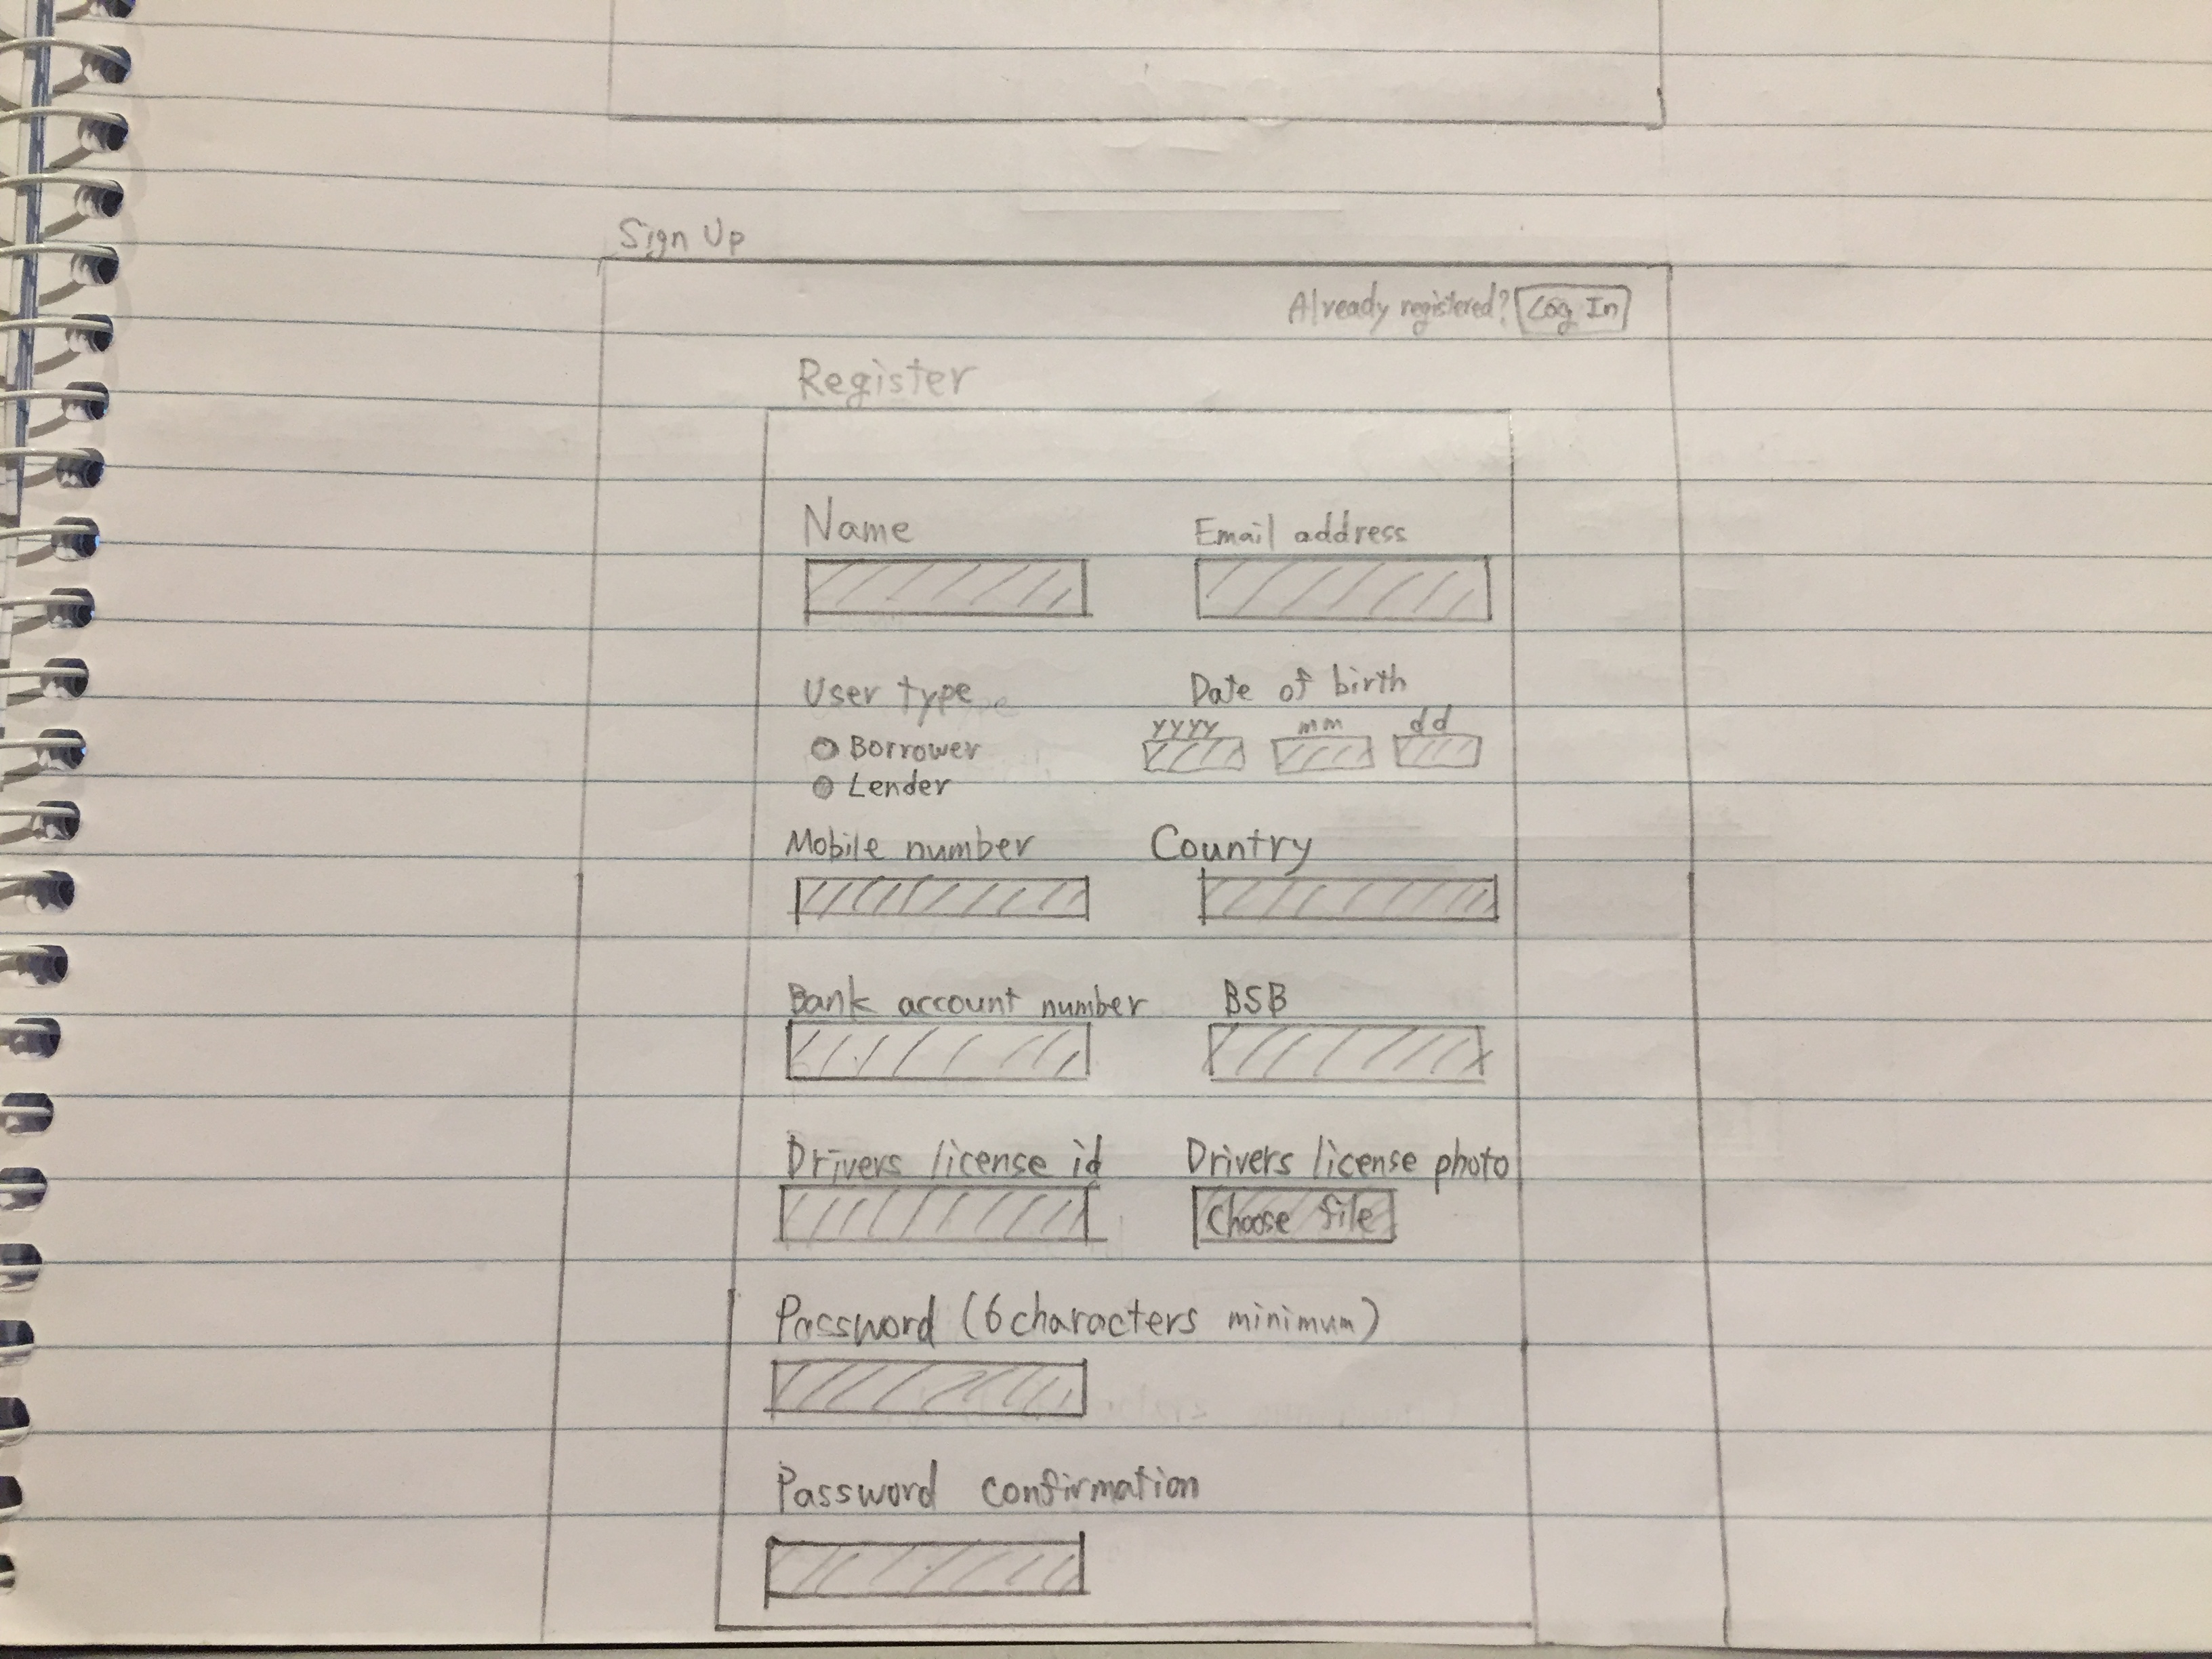 Sign Up
Already registered? Log In
Register
Name Email address
User type Date of birth
yyyy mm dd
Borrower
Lender
Mobile number Country
Bank account number BSB
Drivers license id Drivers license photo
Choose file
Password (6 characters minimum)
Password confirmation